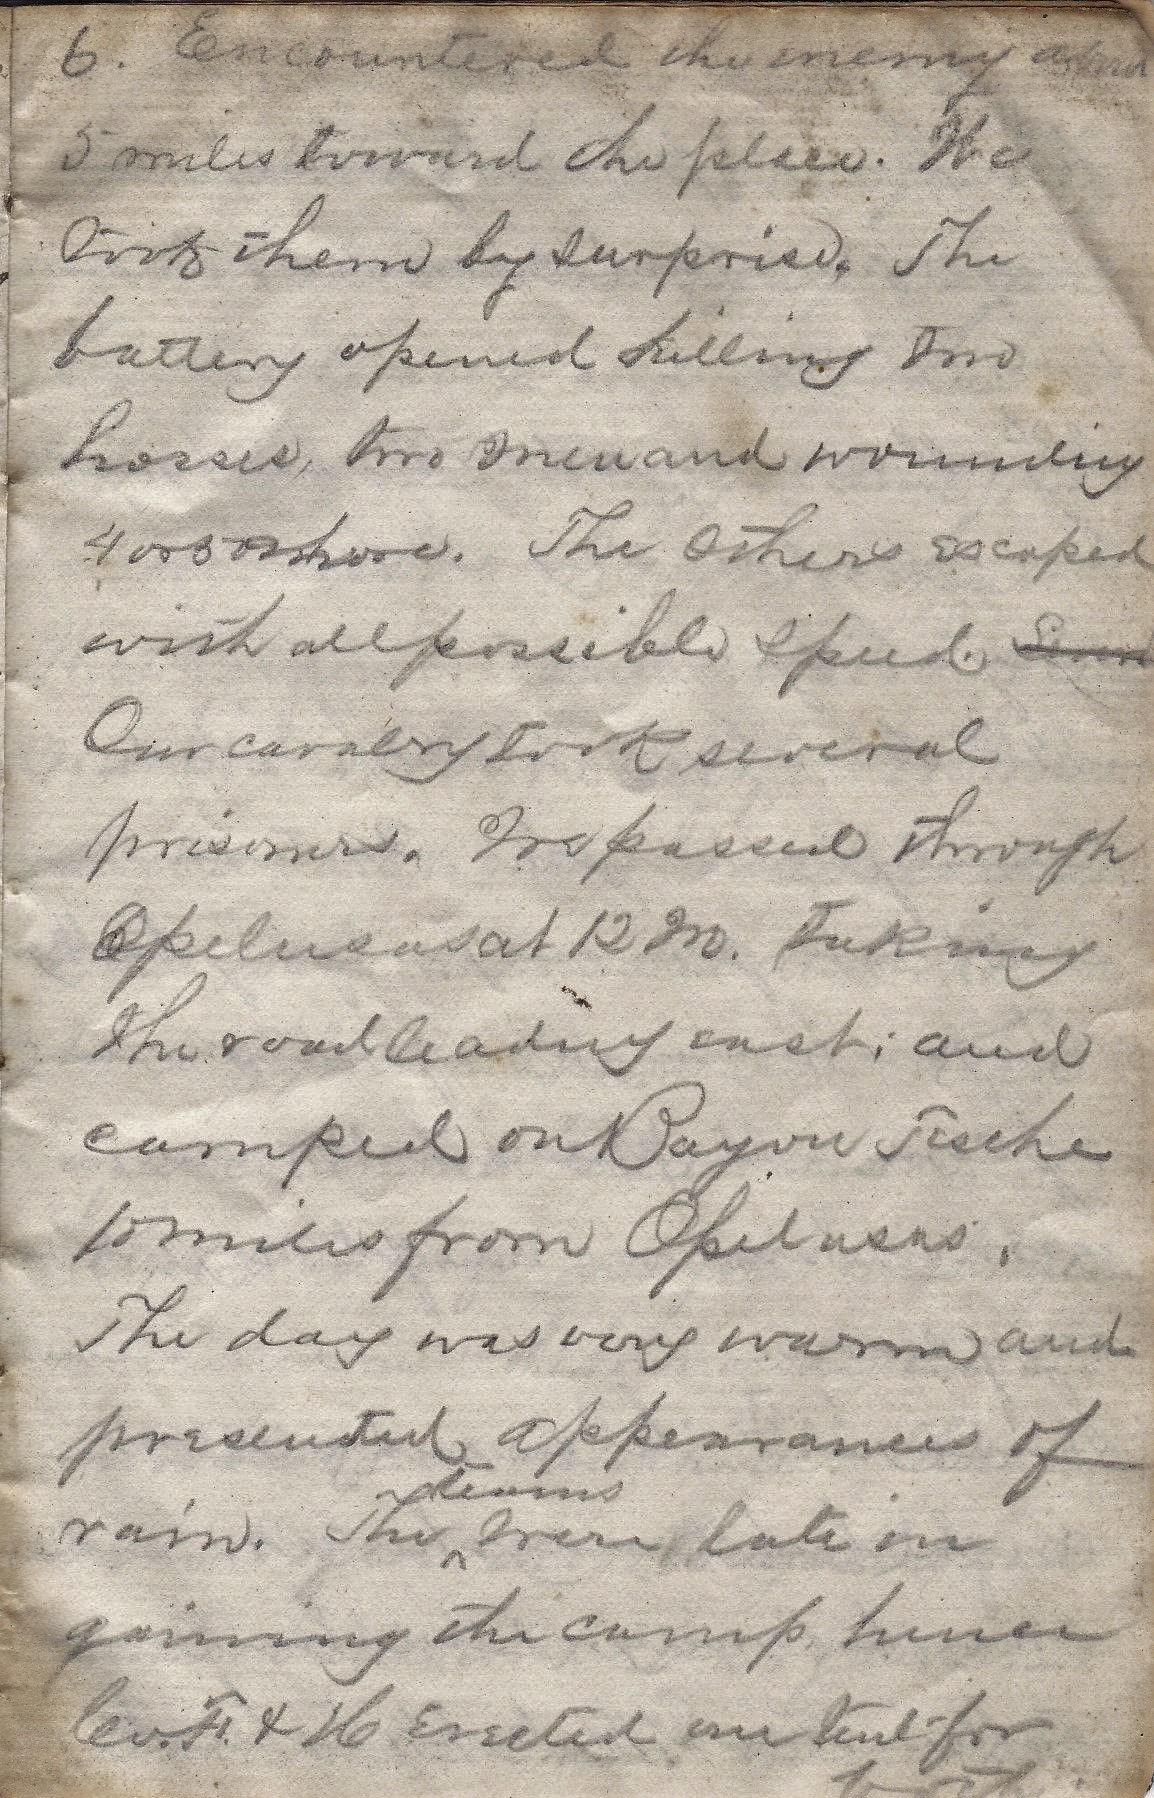 6. Encountered the enemy about
5 miles toward the place. We
took them by surprise. The
battery opened killing two
horses, two men and wounding
4 or 5 more. The others escaped
with all possible speed.
Our cavalry took several
prisoners. We passed through
Opelusas at 12 M. taking
the road leading east; and
camped on Bayou Teche
10 miles from Opelusas.
The day was very warm and
presented appearances of
rain. The teams were late in
gaining the camp, hence
Co. F. & H erected one tent for
both.